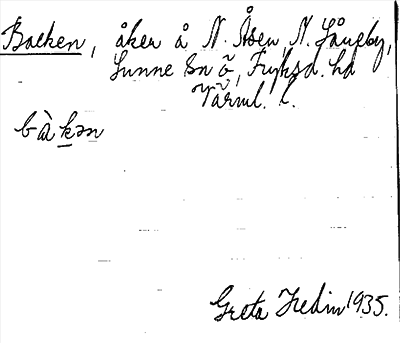 Backen, åker å N. Åsen N. Långby,
Sunne sn ö, Fryksd. hd
Värml. l.
bàkən
Greta Hedin 1935.